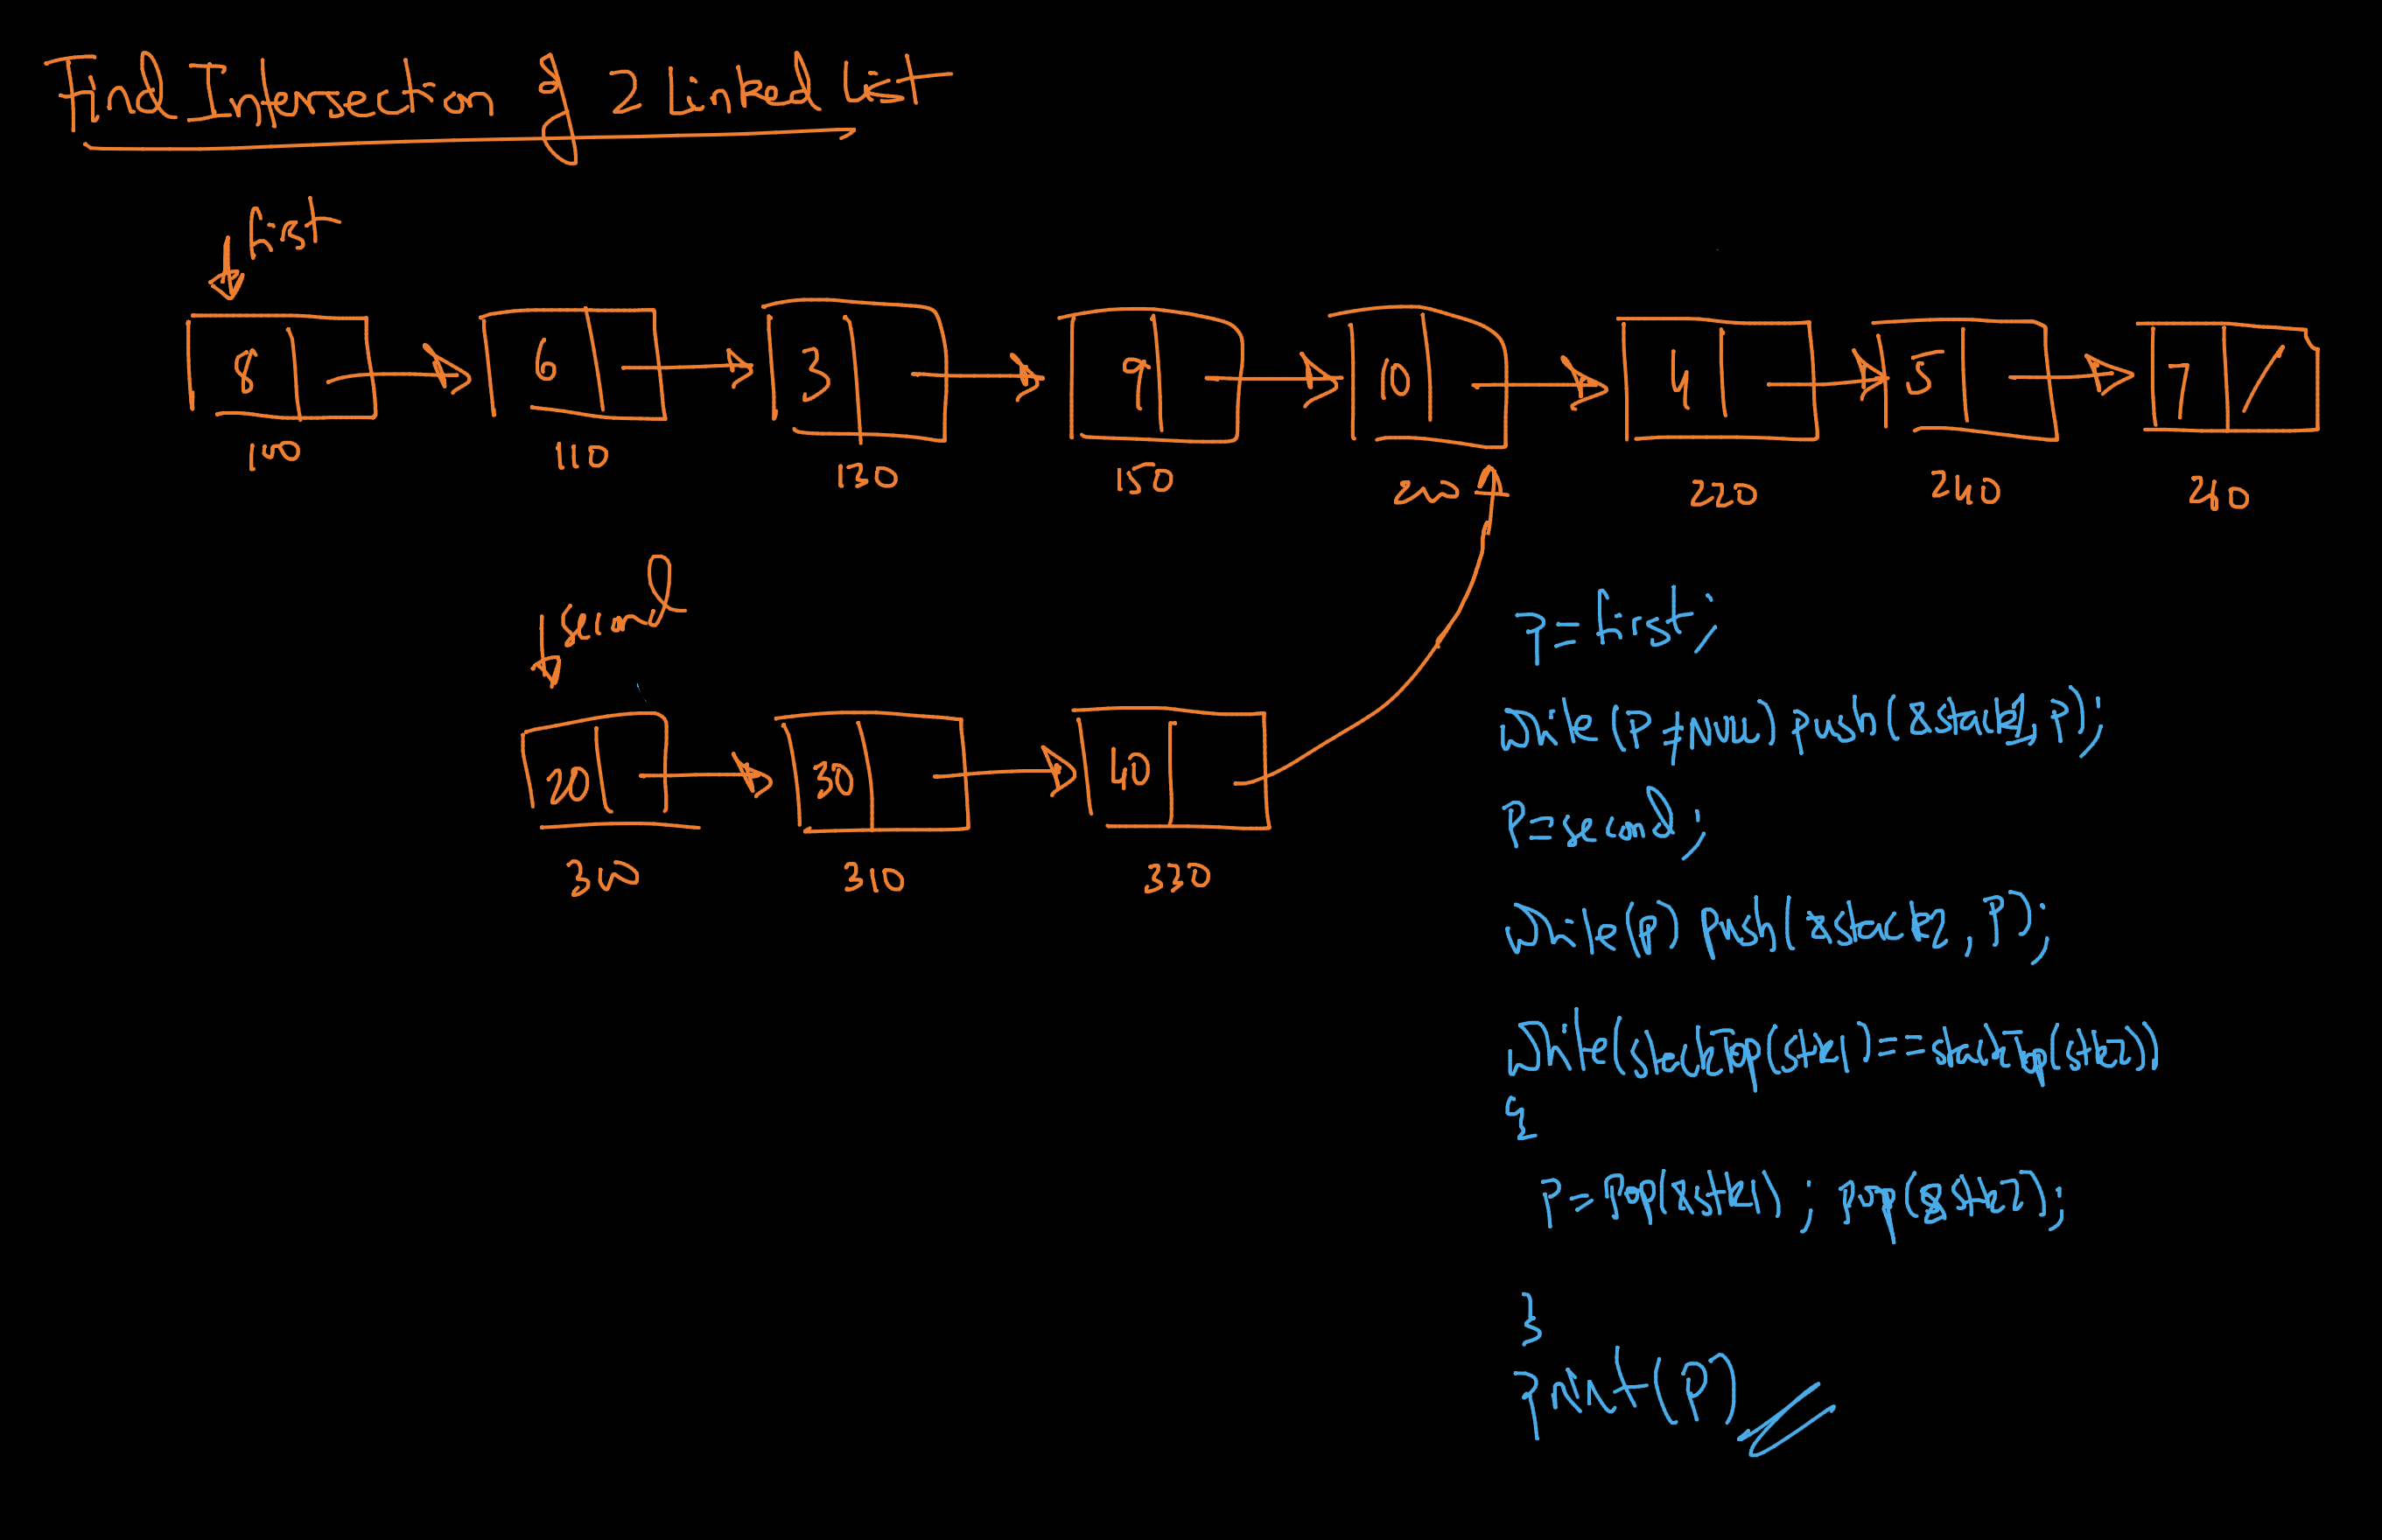 Find Intersection of 2 Linked List
first
8 6 3 9 10 4 5 7
100 110 130 150 200 220 240 260
second
20 30 40
300 310 330
P=first;
while (P≠NULL) push(&stack1, P);
P=second;
while(P) push(&stack2, P);
while(stackTop(stk1)==stackTop(stk2))
{
P=Pop(&stk1); pop(&stk2);
}
print(P)